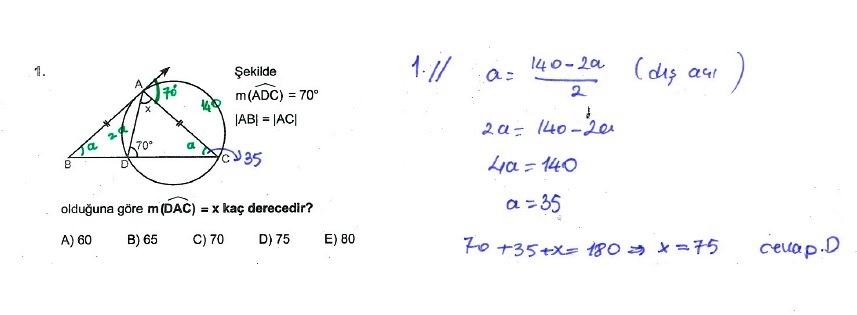 1.
Şekilde
m(ADC) = 70°
|AB| = |AC|
A
70
140
x
2a
a
70°
a
B
D
C
35
olduğuna göre m(DAC) = x kaç derecedir?
A) 60 B) 65 C) 70 D) 75 E) 80
1.// a = 140-2a / 2 (dış açı)
2a = 140-2a
4a = 140
a = 35
70 + 35 + x = 180 ⇒ x = 75 cevap.D